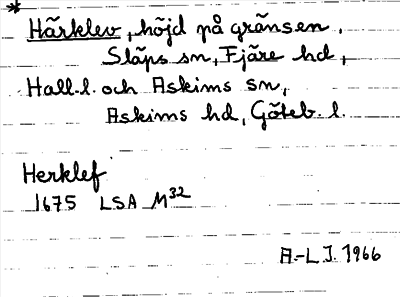 * Härklev, höjd på gränsen.
Släps sn, Fjäre hd,
Hall. l. och Askims sn,
Askims hd, Göteb. l.
Herklef
1675 LSA M32
A.-L J. 1966